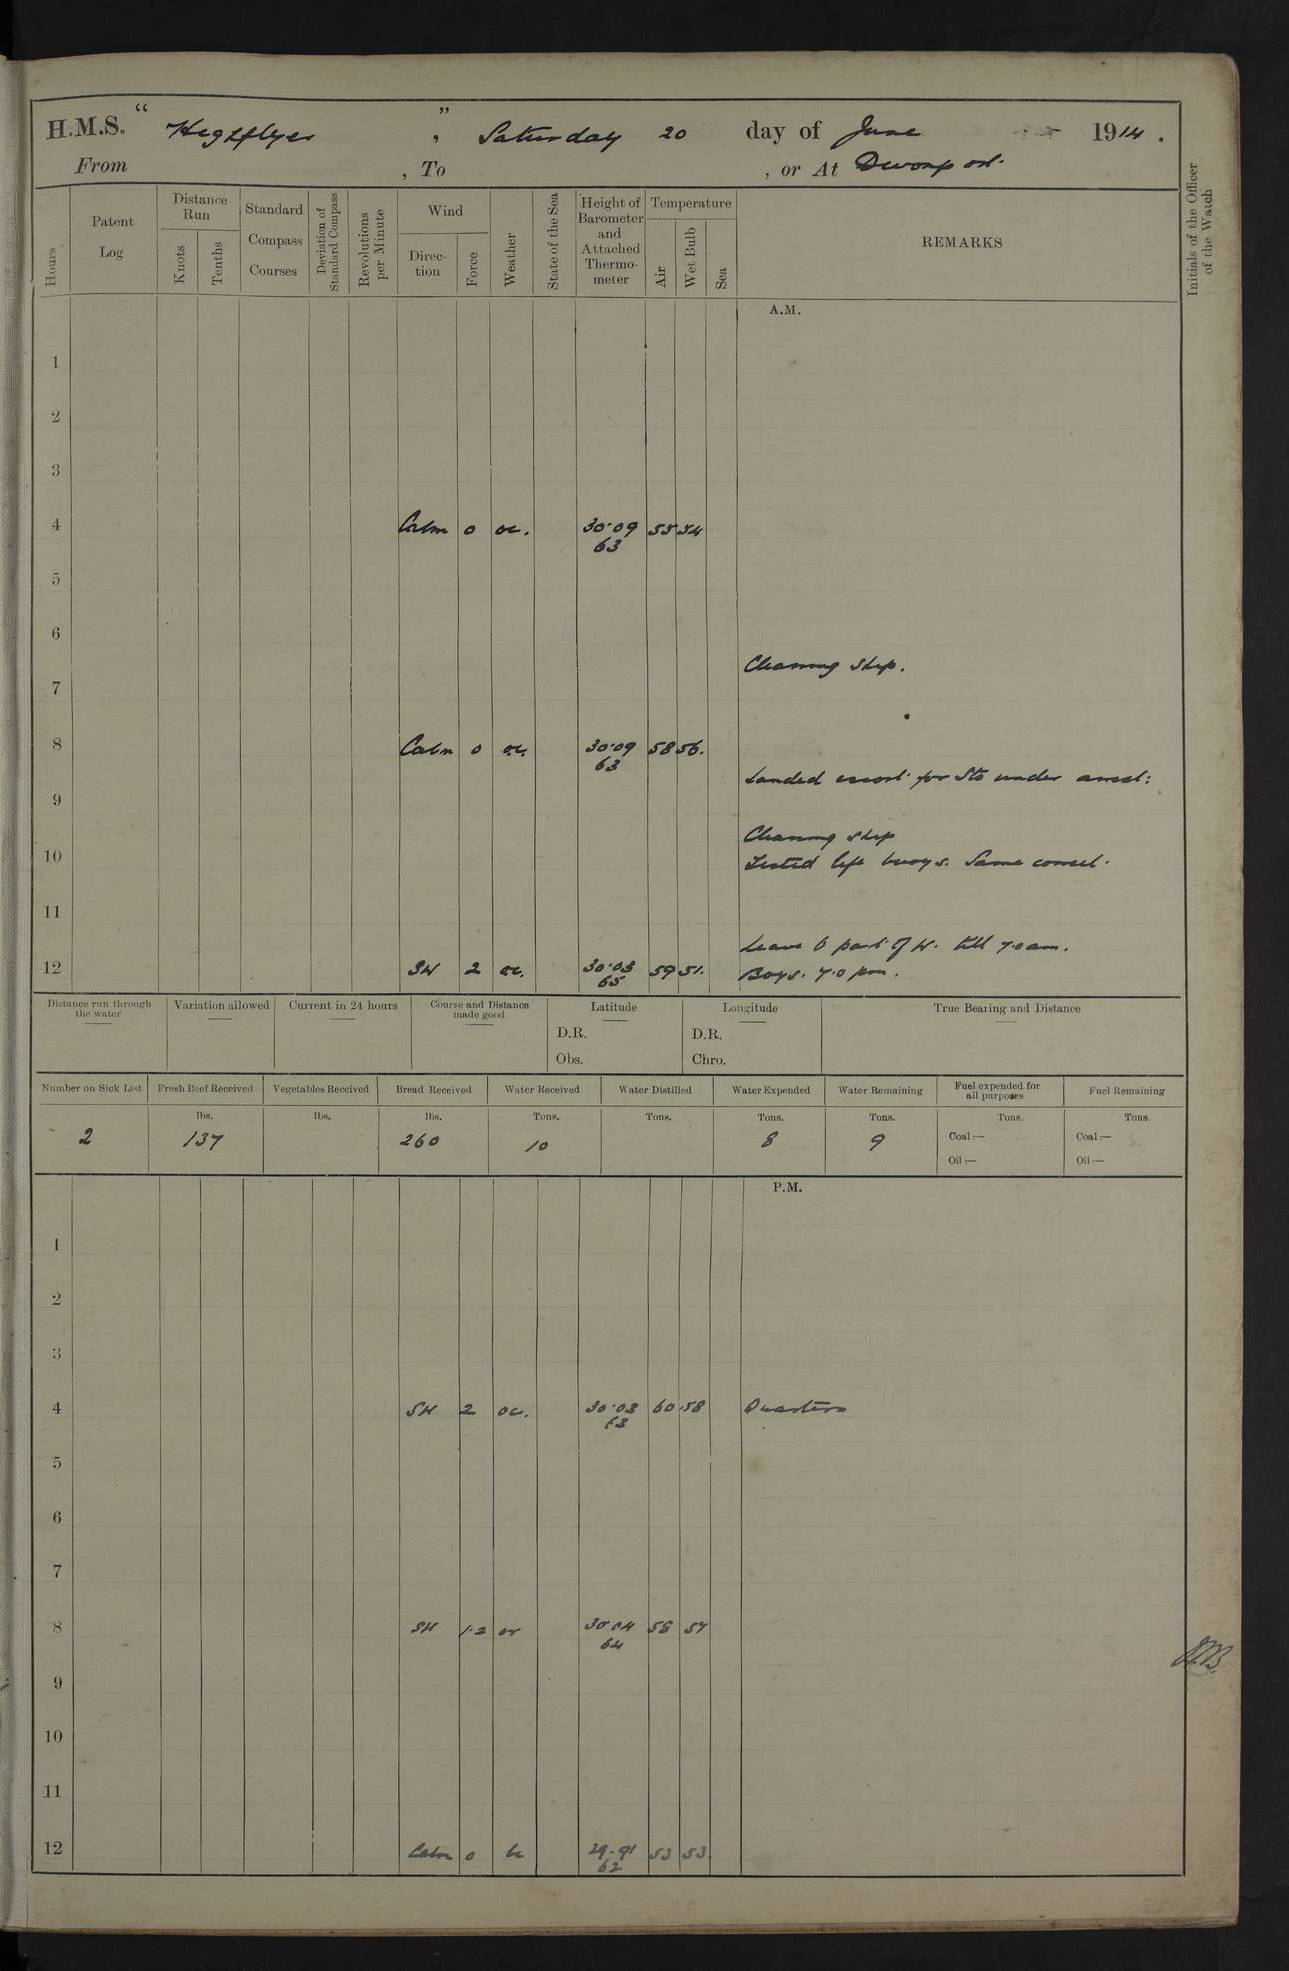 H.M.S. "Highflyer", Saturday 20 day of June 1914.
From , To , or At Devonport.
Hours
Patent Log
Distance Run
Knots
Tenths
Standard Compass Courses
Deviation of Standard Compass
Revolutions per Minute
Wind
Direction
Force
Weather
State of the Sea
Height of Barometer and Attached Thermometer
Temperature
Air
Wet Bulb
Sea
REMARKS
Initials of the Officer of the Watch
A.M.
1
2
3
4 Calm 0 oc. 30.09 55 54
63
5
6
Cleaning ship.
7
8 Calm 0 oc. 30.09 58 56.
63
Landed escort for Sto under arrest:
9
Cleaning ship
10
Tested life buoys. Same correct.
11
Leave to part of W. till 7.0 am.
12 SW 2 oc. 30.03 59 51. Boys. 7.0 pm.
65
Distance run through the water
Variation allowed
Current in 24 hours
Course and Distance made good
Latitude
D.R.
Obs.
Longitude
D.R.
Chro.
True Bearing and Distance
Number on Sick List
Fresh Beef Received
Vegetables Received
Bread Received
Water Received
Water Distilled
Water Expended
Water Remaining
Fuel expended for all purposes
Fuel Remaining
lbs. lbs. lbs. Tons. Tons. Tons. Tons. Tons. Tons.
2 137 260 10 8 9 Coal:— Coal:—
Oil:— Oil:—
P.M.
1
2
3
4 SW 2 oc. 30.03 60 58 Quarters
63
5
6
7
8 SW 1.2 or 30.04 58 57
64
9
10
11
12 Calm 0 bc 29.91 53 53.
62